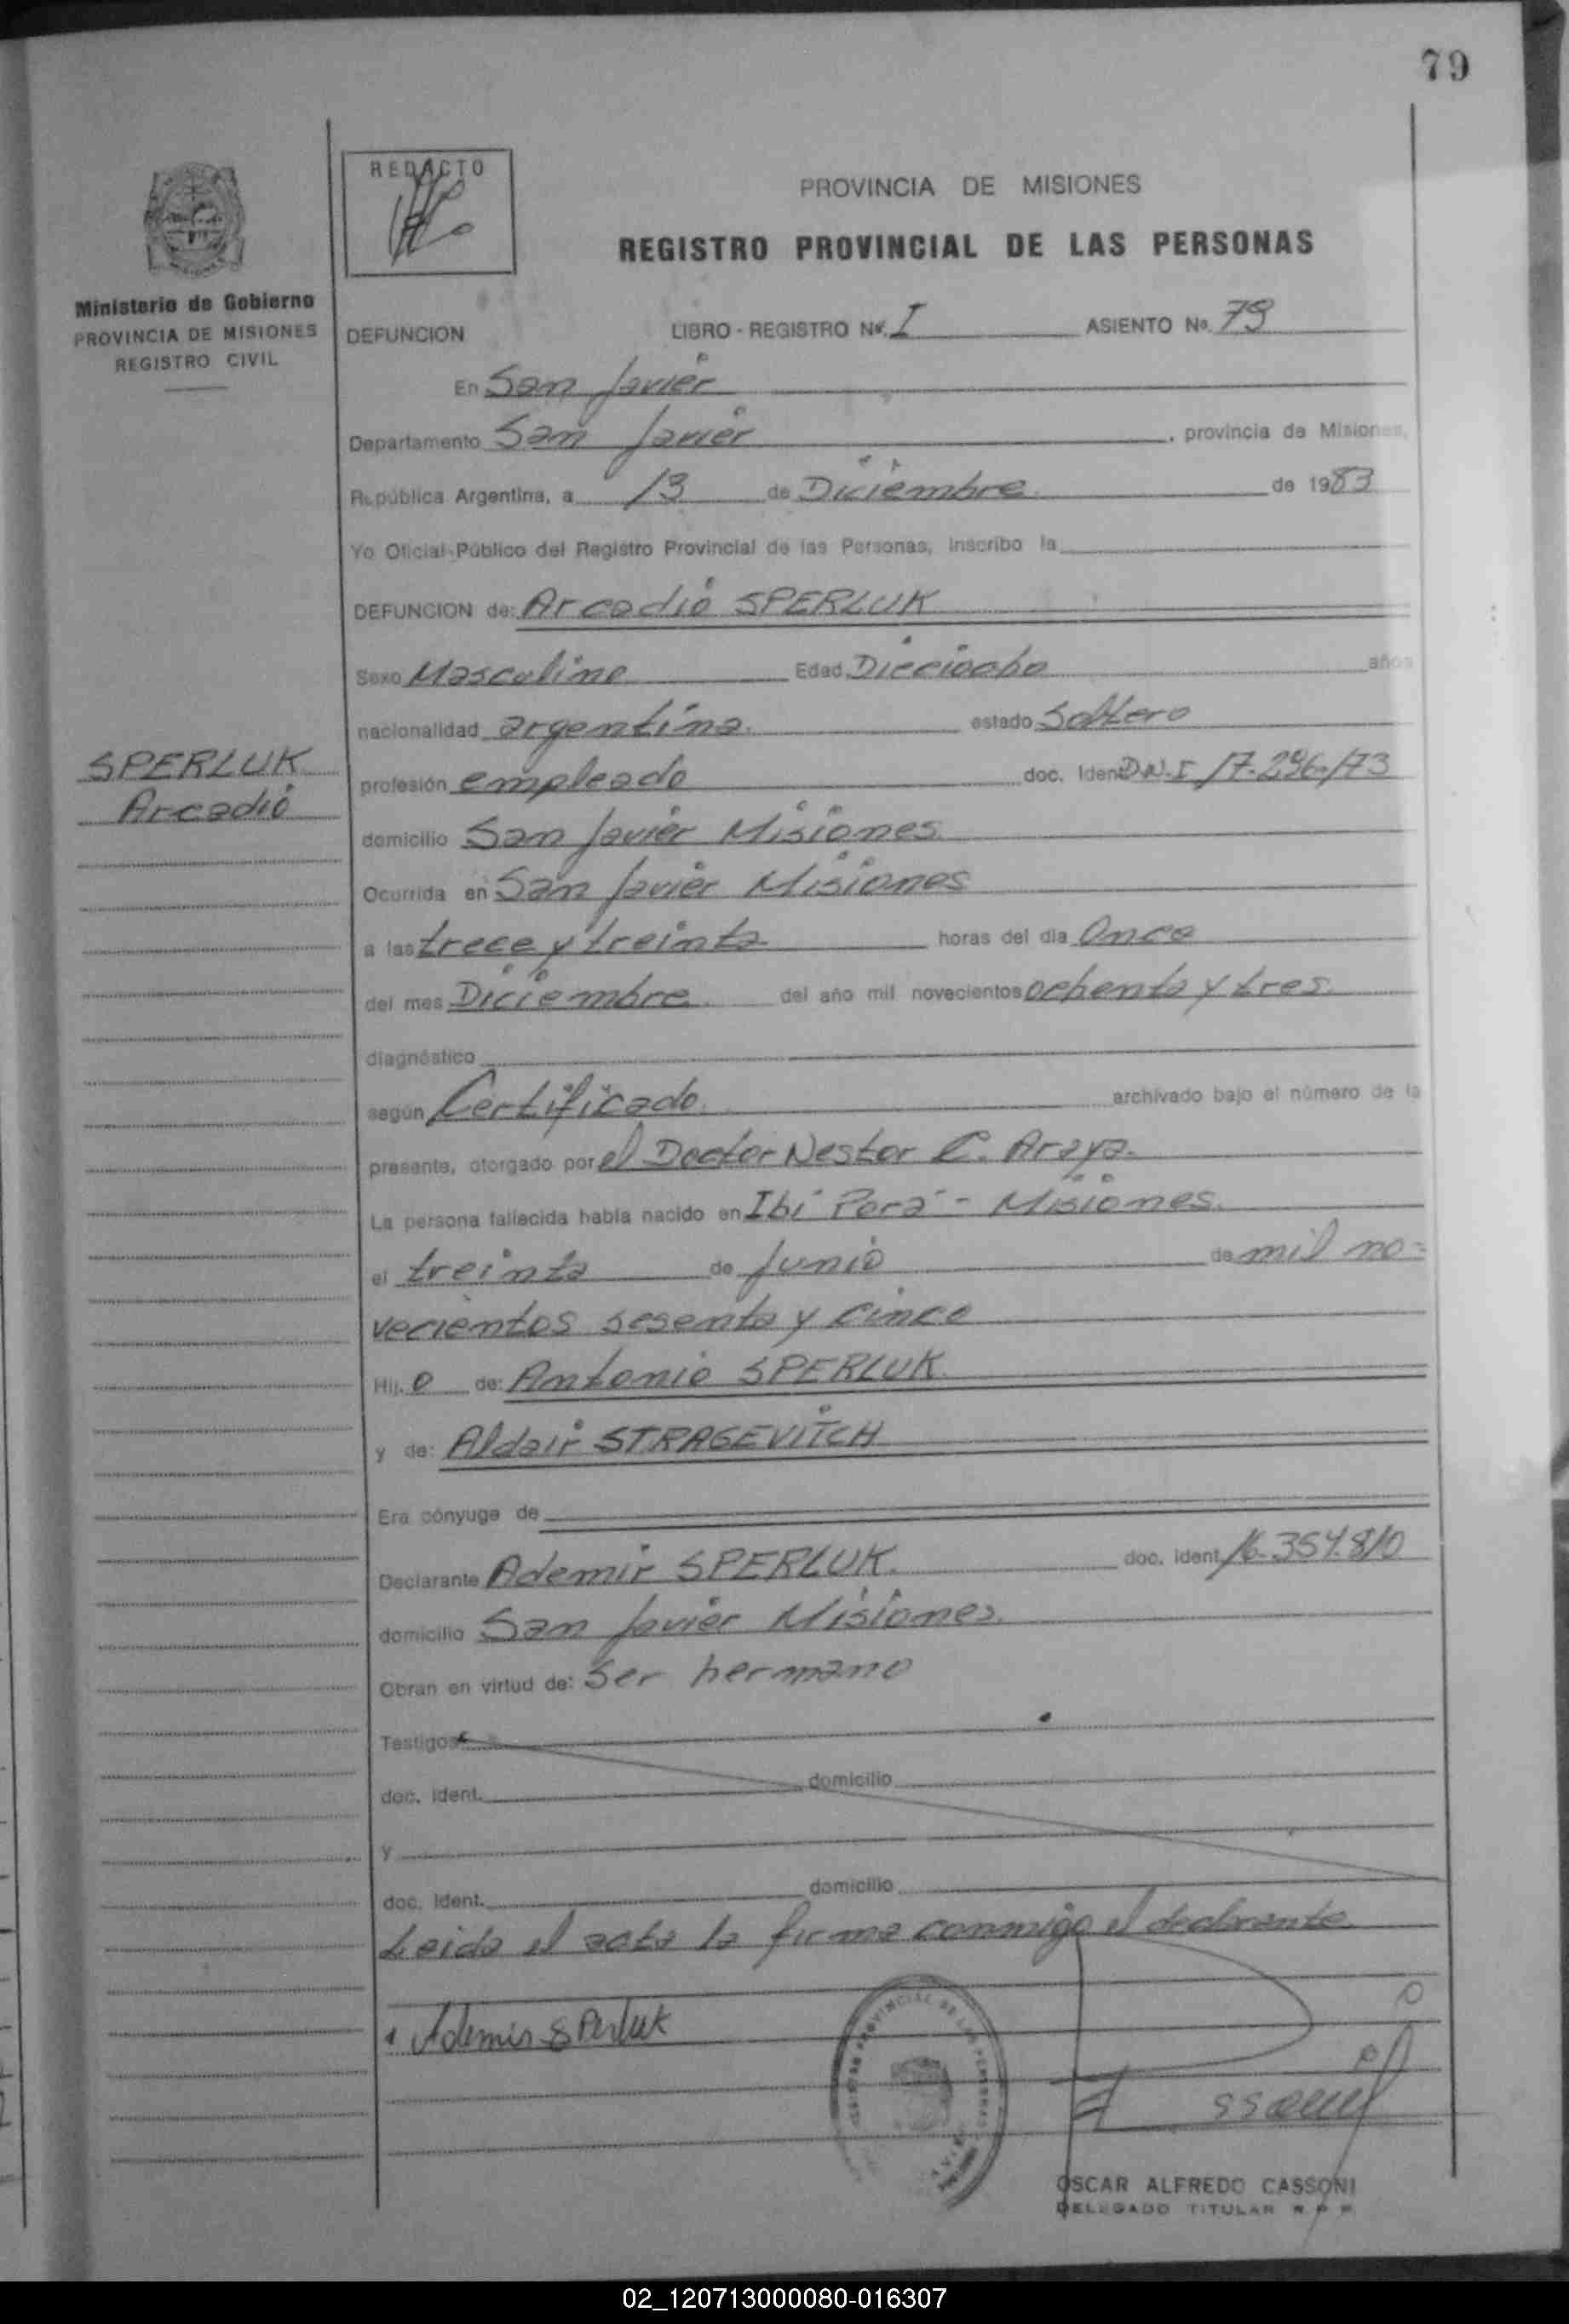 79
REDACTO
PROVINCIA DE MISIONES
REGISTRO PROVINCIAL DE LAS PERSONAS
Ministerio de Gobierno
PROVINCIA DE MISIONES
REGISTRO CIVIL
DEFUNCION LIBRO - REGISTRO Nº. I ASIENTO No. 79
En San Javier
Departamento San Javier, provincia de Misiones,
República Argentina, a 13 de Diciembre de 1983
Yo Oficial Público del Registro Provincial de las Personas, inscribo la
DEFUNCION de: Arcadio SPERLUK
Sexo Masculino Edad Dieciocho años
nacionalidad argentina. estado Soltero
SPERLUK
Arcadio
profesión empleado doc. Ident. D.N.I
domicilio San Javier Misiones.
Ocurrida en San Javier Misiones
a las trece y treinta horas del día Once
del mes Diciembre. del año mil novecientos ochenta y tres.
diagnóstico
según Certificado. archivado bajo el número de la
presente, otorgado por el Doctor Nestor C. Araya.
La persona fallecida había nacido en Ibi Pora - Misiones.
el treinta de Junio de mil no=
vecientos sesenta y cinco
Hij. o de: Antonio SPERLUK.
y de: Aldair STRAGEVITCH
Era cónyuge de
Declarante Ademir SPERLUK. doc. ident. 16.354.810
domicilio San Javier Misiones.
Obran en virtud de: Ser hermano
Testigos
doc. ident. domicilio
y
doc. ident. domicilio
Leida el acta la firma conmigo el declarante
Ademir SPerluk
REGISTRO PROVINCIAL DE LAS PERSONAS
OSCAR ALFREDO CASSONI
DELEGADO TITULAR R P P
02_120713000080-016307